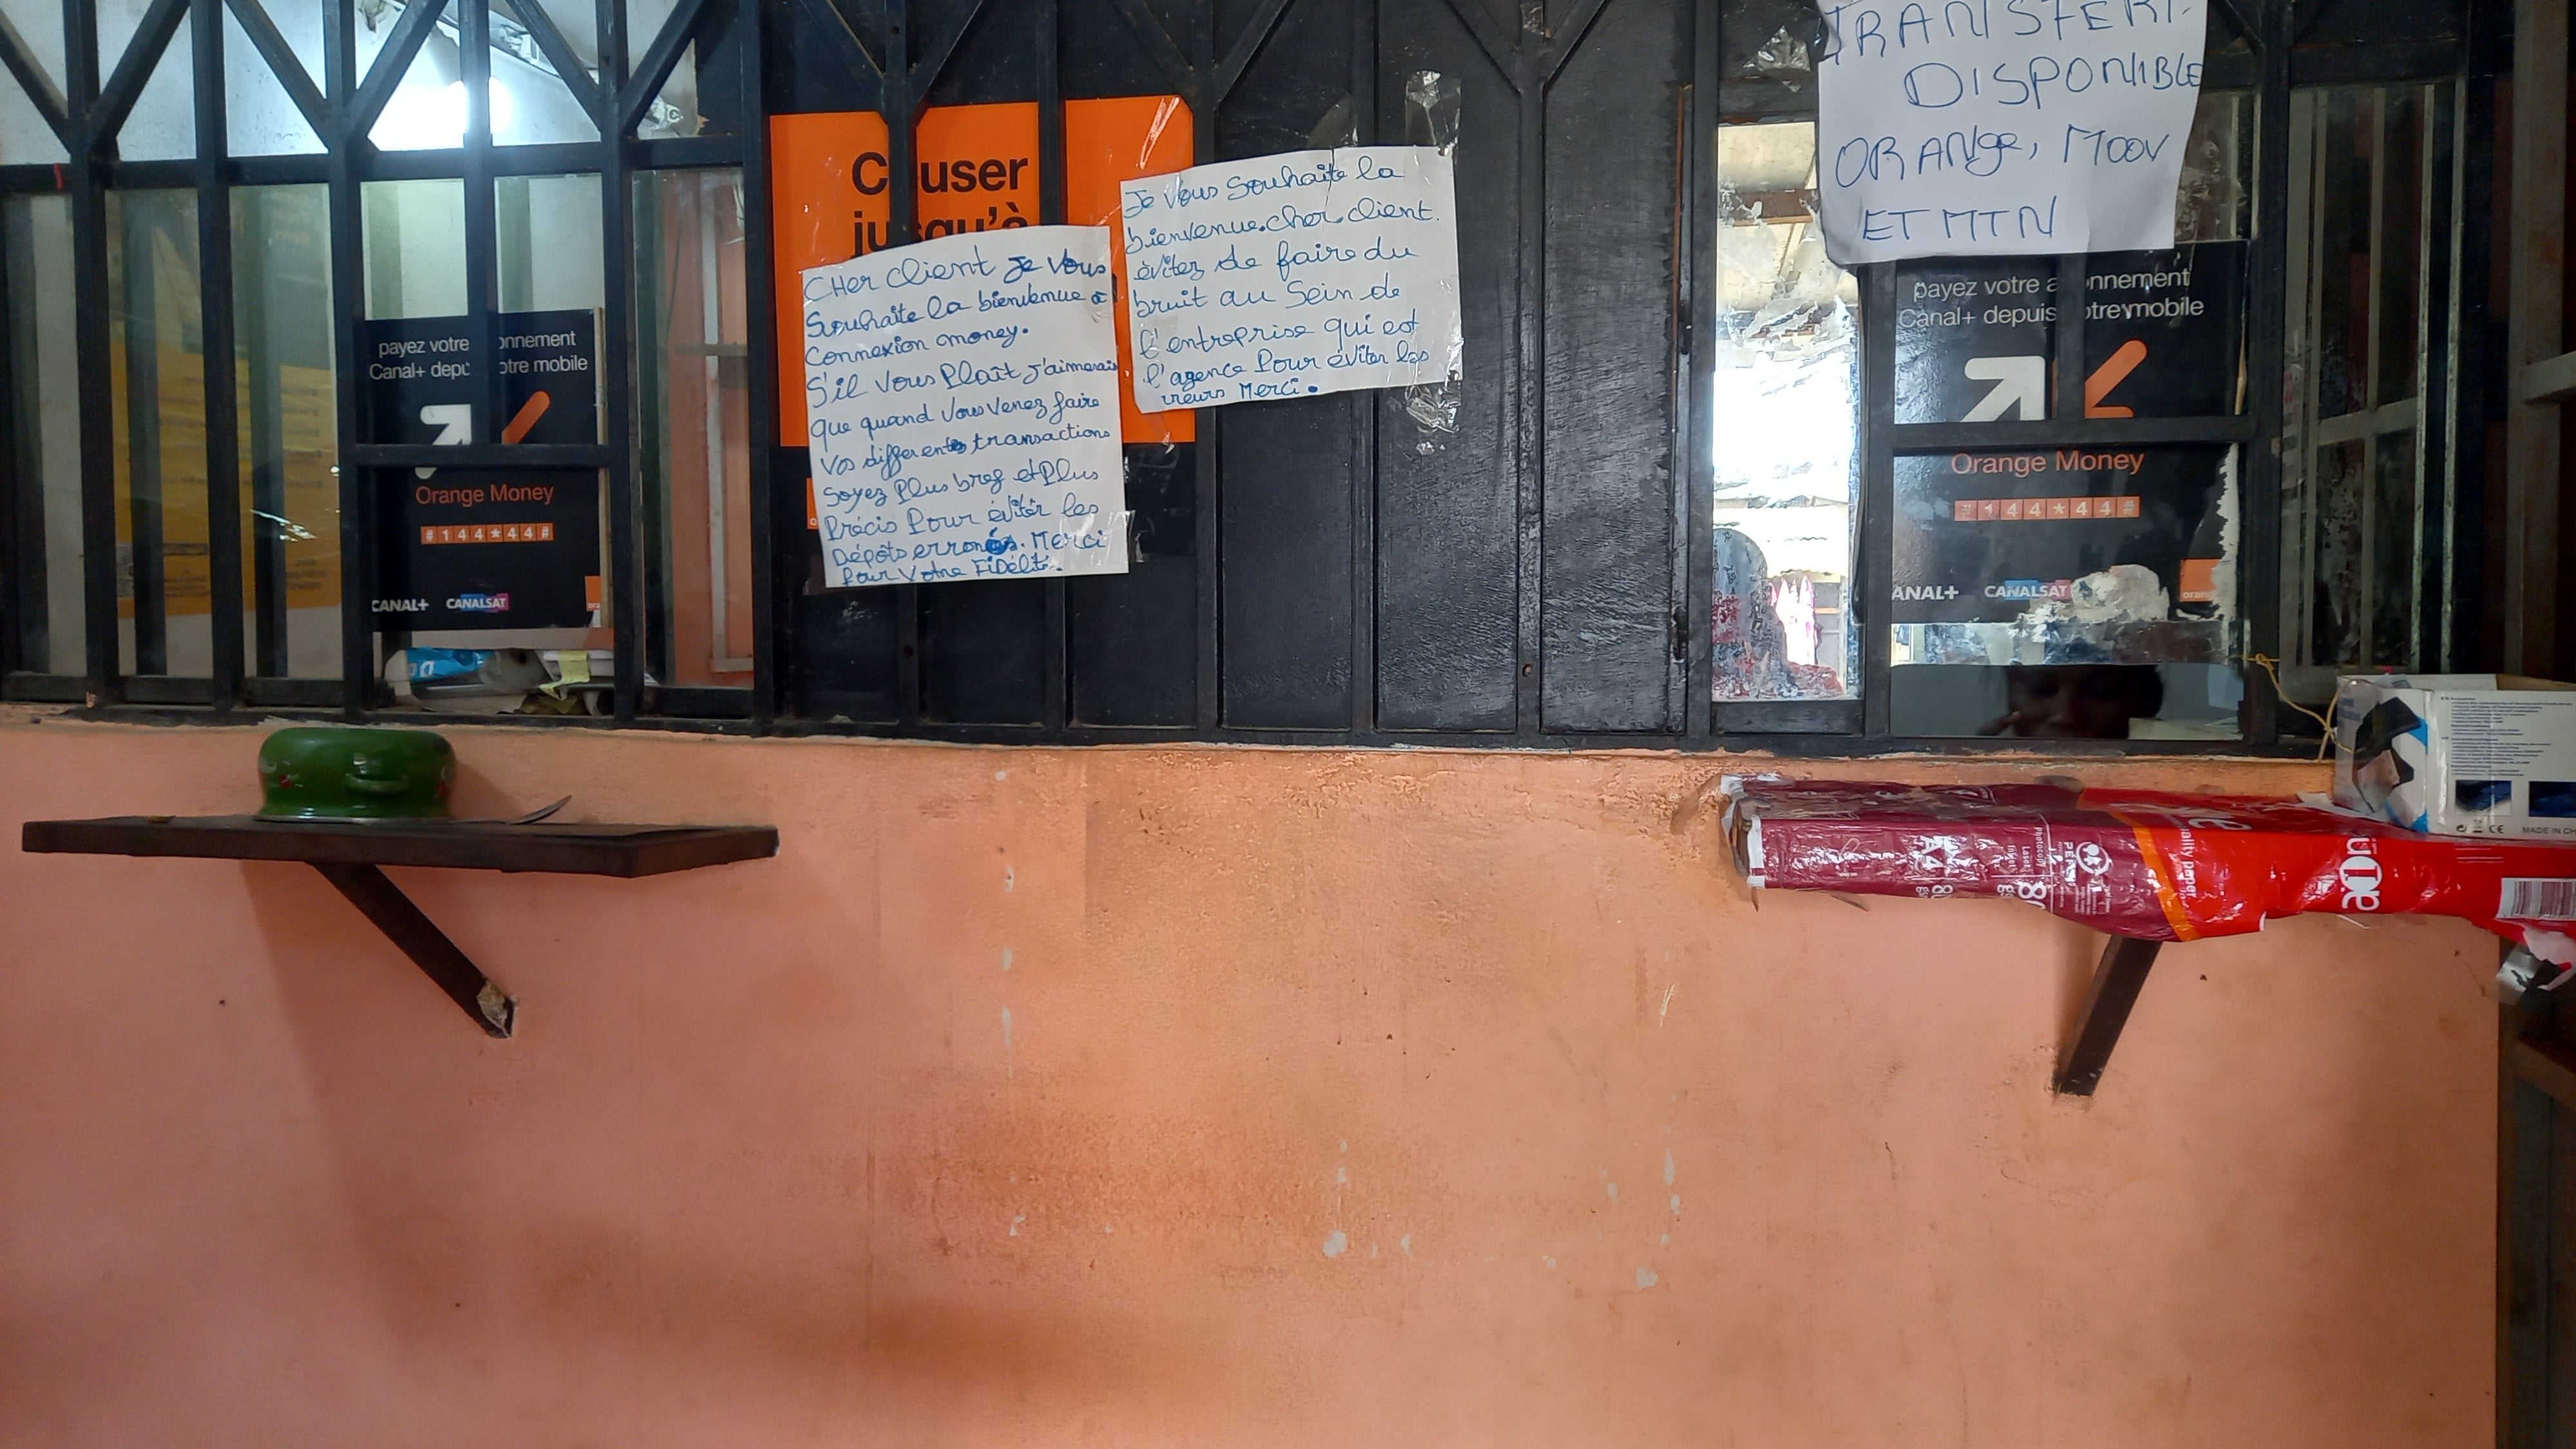 payez votre
onnement
Canal+ depu
otre mobile
Orange Money
#144*44#
CANAL+ CANALSAT
C user
jusqu'à
CHer client Je Vous
Souhaite la bienvenue à
Connexion money.
S'il Vous Plaît J'aimerais
que quand Vous Venez faire
Vos differentes transactions
Soyez Plus bref et Plus
Précis Pour éviter les
Dépôts erronés. Merci
Pour Votre Fidélité.
Je Vous Souhaite la
bienvenue. cher client.
évitez de faire du
bruit au Sein de
l'entreprise qui est
l'agence Pour éviter les
rreurs Merci.
TRANSFERT.
DISPONIBLE
ORANge, MOOV
ET MTN
payez votre a onnement
Canal+ depuis otre mobile
Orange Money
#144*44#
ANAL+ CANALSAT
CE MADE IN CH
Photocopy
Laser
A4 80
ality paper